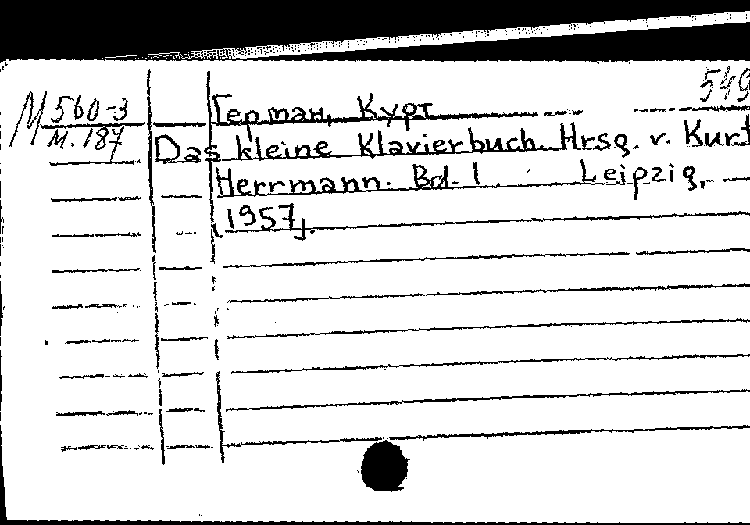 549
М 560-3
М. 187
Герман, Курт
Das kleine Klavierbuch. Hrsg. v. Kurt
Herrmann. Bd. 1 Leipzig,
[1957].